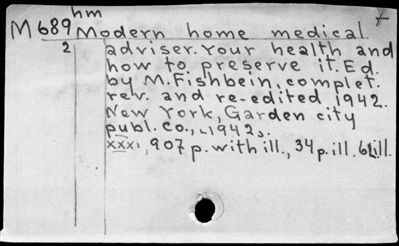 hm
7
M689 Modern home medical
2 adviser. Your health and
how to preserve it. Ed.
by M. Fishbein, complet.
rev. and re-edited 1942.
New York, Garden city
publ. Co., [1942].
xxxi, 907 p. with ill., 34 p. ill. 6 ill.